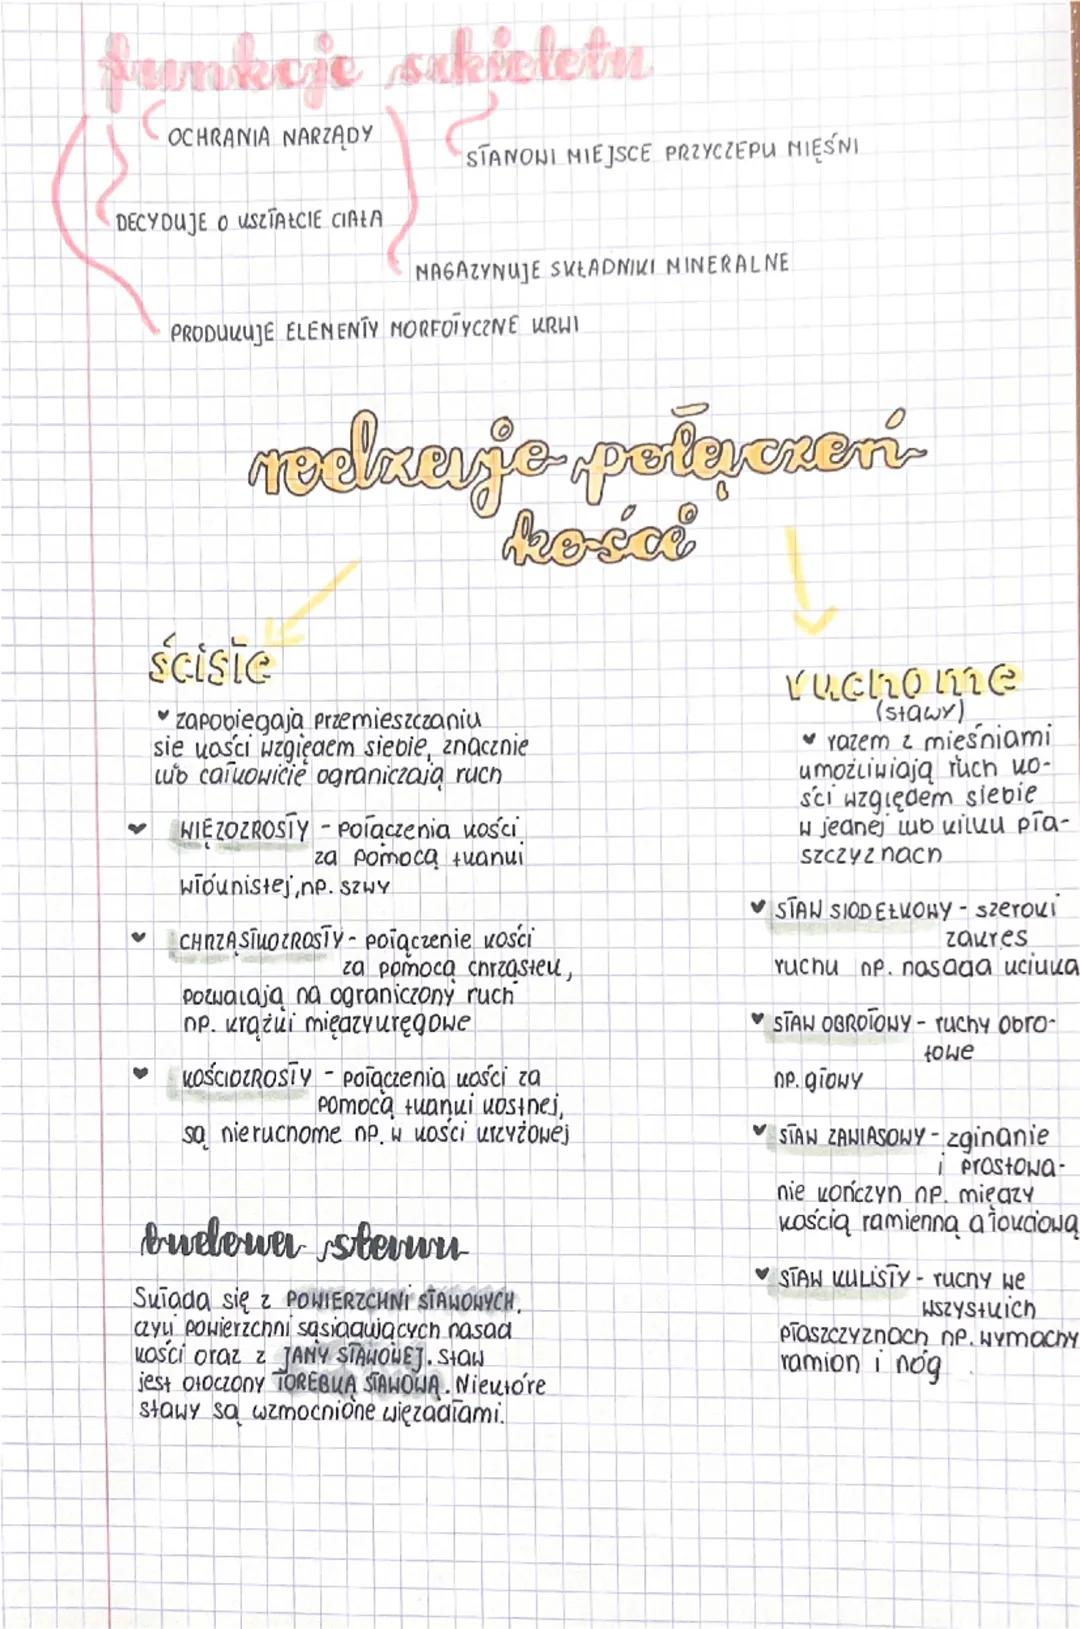 funkcje szkieletu
OCHRANIA NARZĄDY
STANOWI MIEJSCE PRZYCZEPU MIĘŚNI
DECYDUJE O KSZTAŁCIE CIAŁA
MAGAZYNUJE SKŁADNIKI MINERALNE
PRODUKUJE ELEMENTY MORFOTYCZNE KRWI
rodzaje połączeń
kości
ścisłe
zapobiegają przemieszczaniu
się kości względem siebie, znacznie
lub całkowicie ograniczają ruch
WIĘZOZROSTY - połączenia kości
za pomocą tkanki
włóknistej, np. szwy
CHRZĄSTKOZROSTY - połączenie kości
za pomocą chrząstek,
pozwalają na ograniczony ruch
np. krążki międzykręgowe
KOŚCIOZROSTY - połączenia kości za
pomocą tkanki kostnej,
są nieruchome np. w kości krzyżowej
budowa stawu
Składa się z POWIERZCHNI STAWOWYCH,
czyli powierzchni sąsiadujących nasad
kości oraz z JAMY STAWOWEJ. Staw
jest otoczony TOREBKĄ STAWOWĄ. Niektóre
stawy są wzmocnione więzadłami.
ruchome
(stawy)
razem z mięśniami
umożliwiają ruch ko-
ści względem siebie
w jednej lub kilku pła-
szczyznach
STAW SIODEŁKOWY - szeroki
zakres
ruchu np. nasada kciuka
STAW OBROTOWY - ruchy obro-
towe
np. głowy
STAW ZAWIASOWY - zginanie
i prostowa-
nie kończyn np. między
kością ramienną a łokciową
STAW KULISTY - ruchy we
wszystkich
płaszczyznach np. wymachy
ramion i nóg